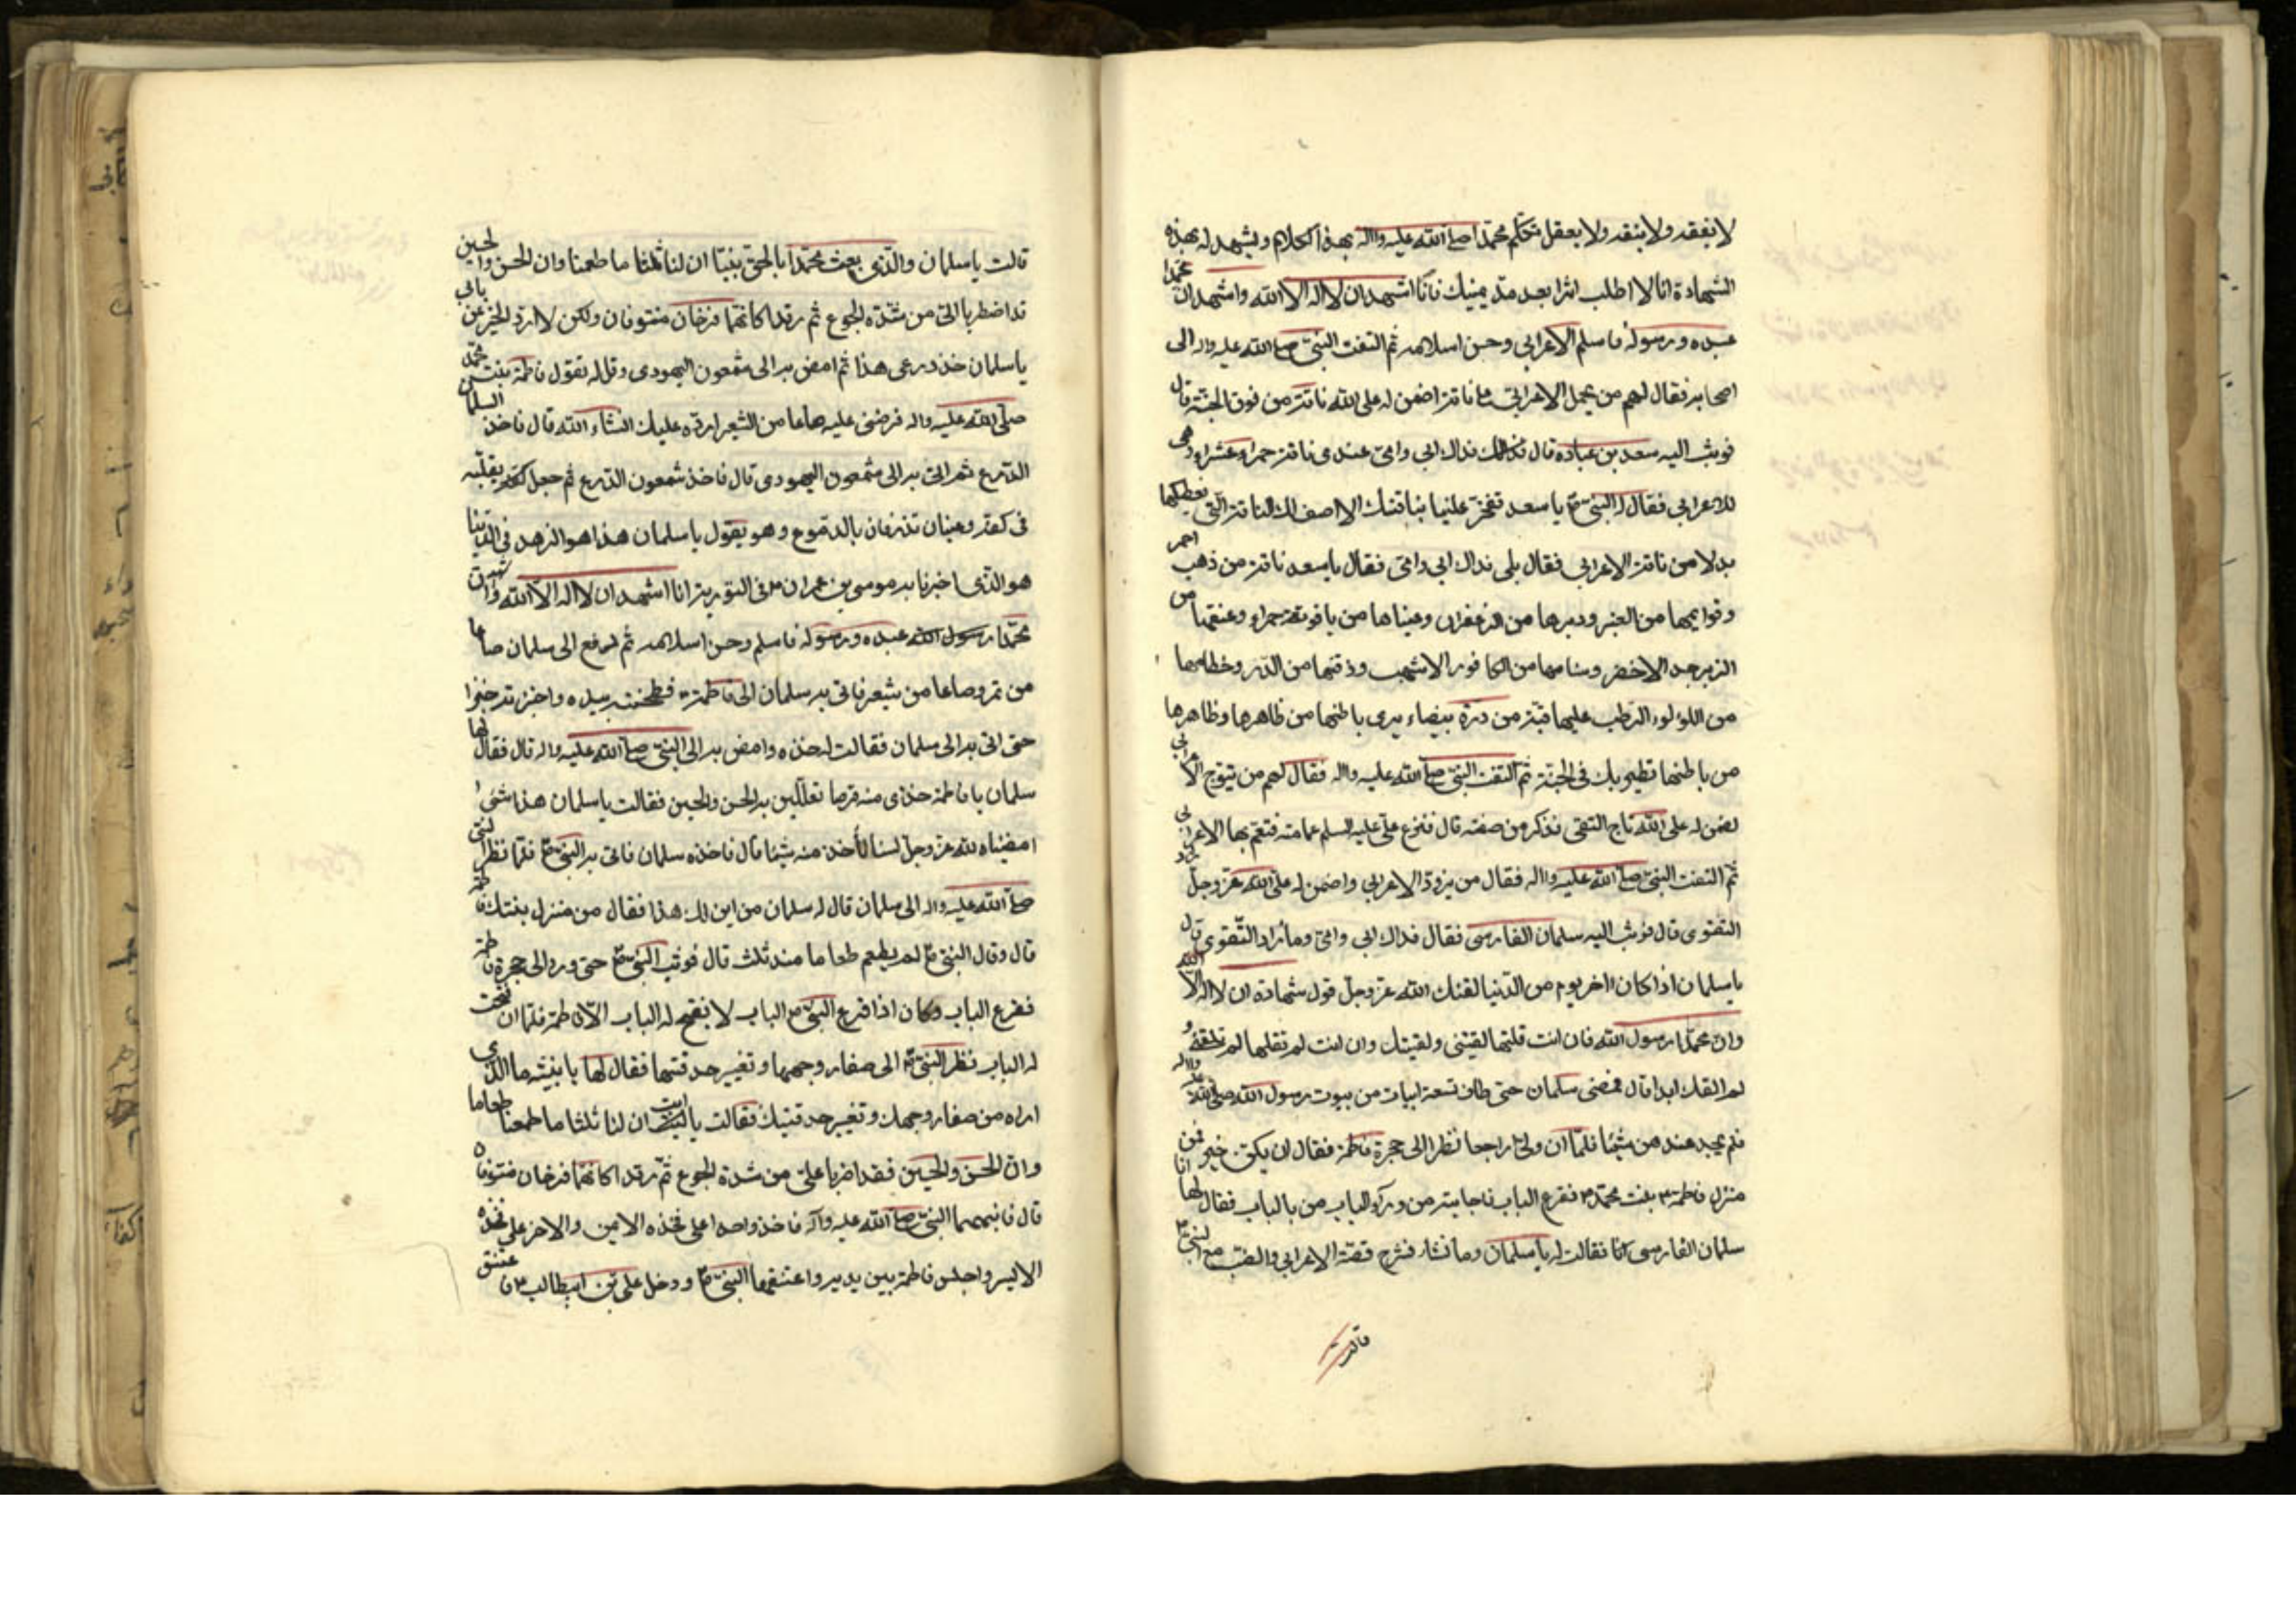 لا يفقه ولا ينقه ولا يعقل تكلم محمدا صلى الله عليه واله بهذا الكلام ويشهد له بهذه
الشهادة انا لا اطلب اثرا بعد عين فانا اشهد ان لا اله الا الله واشهد ان محمدا
عبده ورسوله فاسلم الاعرابي وحسن اسلامه ثم التفت النبي صلى الله عليه واله الى
اصحابه فقال لهم من يحمل الاعرابي على ناقة اضمن له على الله ناقة من نوق الجنة قال
فوثب اليه سعد بن عباده قال فداك ابي وامي عندي ناقة حمراء عشراء وهي
للاعرابي فقال له النبي ص يا سعد تفخر علينا بناقتك الا اصف لك الناقة التي نعطيكها
بدلا من ناقة الاعرابي فقال بلى فداك ابي وامي فقال يا سعد ناقة من ذهب احمر
وقوايمها من العنبر ووبرها من الزعفران وعيناها من ياقوتة حمراء وعنقها من
الزبرجد الاخضر وسنامها من الكافور الاشهب وذقنها من الدر وخطامها
من اللؤلوء الرطب عليها قبة من درة بيضاء يرى باطنها من ظاهرها وظاهرها
من باطنها تطير بك في الجنة ثم التفت النبي صلى الله عليه واله فقال لهم من يتوج الاعرابي
اضمن له على الله تاج التقى فذكر من صفته قال فنزع علي عليه السلم عمامته فتعمم بها الاعرابي
ثم التفت النبي صلى الله عليه واله فقال من يزود الاعرابي واضمن له على الله عز وجل زاد
التقوى قال فوثب اليه سلمان الفارسي فقال فداك ابي وامي وما زاد التقوى قال
يا سلمان اذا كان اخر يوم من الدنيا لقنك الله عز وجل قول شهادة ان لا اله الا الله
وان محمدا رسول الله فان انت قلتها لقيتني ولقيتك وان انت لم تقلها لم تلقني و
لم القك ابدا قال فمضى سلمان حتى طاف تسعة ابيات من بيوت رسول الله صلى الله عليه واله
فلم يجد عندهن شيئا فلما ان ولى راجعا نظر الى حجرة فاطمة فقال ان يكن خير فمن
منزل فاطمة بنت محمد فقرع الباب فاجابته من وراء الباب من بالباب فقال لها انا
سلمان الفارسي فقالت له يا سلمان وما تشاء فشرح قصة الاعرابي والضب مع النبي
قالت
قالت يا سلمان والذي بعث محمدا بالحق نبيا ان لنا ثلثا ما طعمنا وان الحسن والحسين
قد اضطربا الي من شدة الجوع ثم رقدا كانهما فرخان منتوفان ولكن لا ارد الخير عن بابي
يا سلمان خذ درعي هذا ثم امض به الى شمعون اليهودي وقل له تقول فاطمة بنت محمد
صلى الله عليه واله قرضني عليه صاعا من الشعير ارده عليك انشاء الله قال فاخذ السلمان
الدرع ثم اتى به الى شمعون اليهودي قال فاخذ شمعون الدرع ثم جعل يقلبه
في كفه وعيناه تذرفان بالدموع وهو يقول يا سلمان هذا هو الزهد في الدنيا
هو الذي اخبرنا به موسى بن عمران في التورية انا اشهد ان لا اله الا الله واشهد ان
محمدا رسول الله عبده ورسوله فاسلم وحسن اسلامه ثم دفع الى سلمان صاعا
من تمر وصاعا من شعير فاتى به سلمان الى فاطمة فطحنت بيده واختبزته خبزا
حتى اتى به الى سلمان فقالت له خذه وامض به الى النبي صلى الله عليه واله قال فقال لها
سلمان يا فاطمة خذي منه قرصا تعللين به الحسن والحسين فقالت يا سلمان هذا شيء
امضيناه لله عز وجل لسنا نأخذ منه شيئا قال فاخذه سلمان فاتى به النبي ص فلما نظر النبي
صلى الله عليه واله الى سلمان قال له سلمان من اين لك هذا فقال من منزل بنتك فاطمة
قال وقال النبي لم يطعم طعاما منذ ثلث قال فوثب النبي ص حتى ورد الى حجرة فاطمة
فقرع الباب وكان اذا قرع النبي الباب لا يفتح له الباب الا فاطمة فلما ان فتحت
له الباب نظر النبي الى صفار وجهها وتغير حدقتيها فقال لها يا بنيه ما الذي
اراه من صفار وجهك وتغير حدقتيك فقالت يا ابت ان لنا ثلثا ما طعمنا طعاما
وان الحسن والحسين فقد اضربا علي من شدة الجوع ثم رقدا كانهما فرخان منتوفان
قال فانبههما النبي صلى الله عليه واله فاخذ واحدا على فخذه الايمن والاخر على فخذه
الايسر واجلس فاطمة بين يديه واعتنقها النبي ص ودخل علي بن ابيطالب فاعتنق